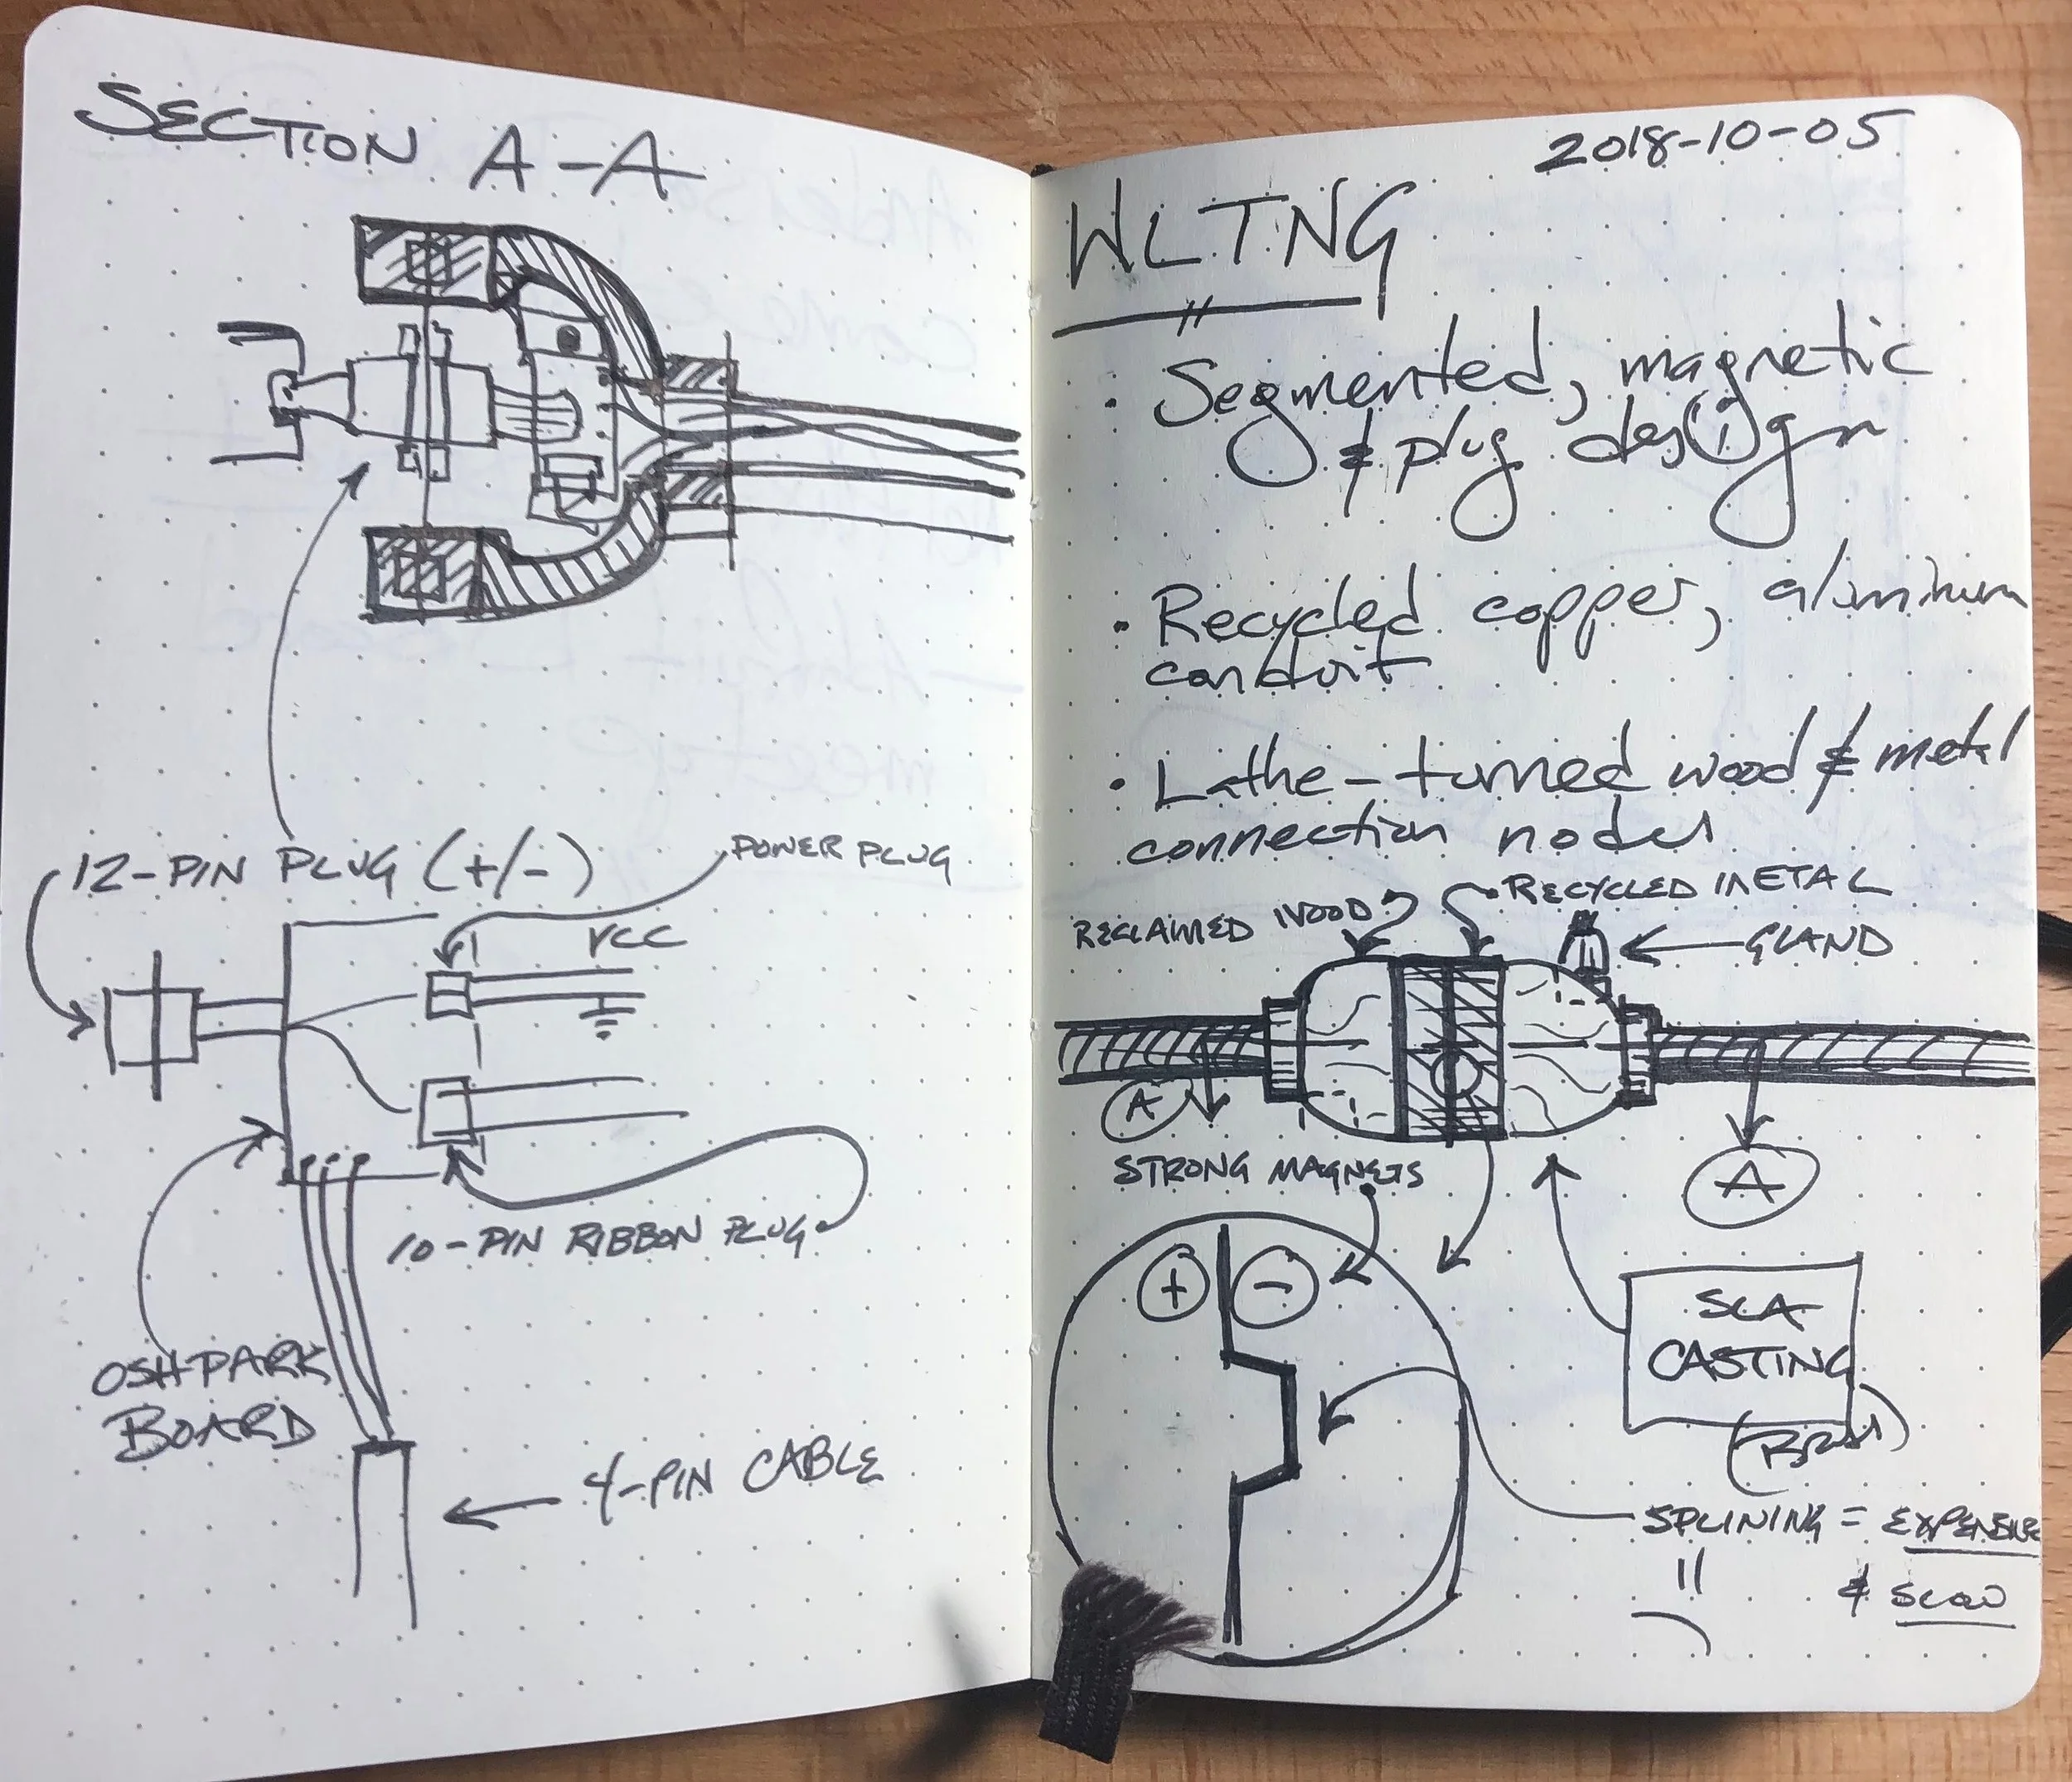 SECTION A-A
12-PIN PLUG (+/-)
POWER PLUG
VCC
10-PIN RIBBON PLUG
OSHPARK
BOARD
4-PIN CABLE
2018-10-05
WLTNG
• Segmented, magnetic
& plug design
• Recycled copper, aluminum
conduit
• Lathe-turned wood & metal
connection nodes
RECLAIMED WOOD
RECYCLED METAL
GLAND
A
A
STRONG MAGNETS
+ -
SLA
CASTING
SPLINING = EXPENSIVE
&